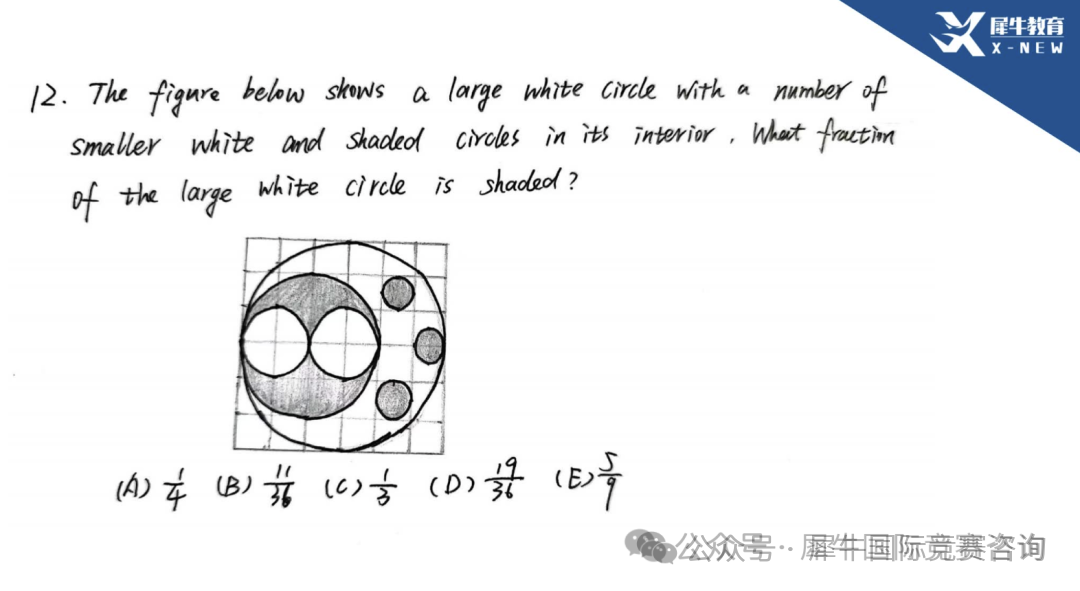 犀牛教育
X-NEW
12. The figure below shows a large white circle with a number of
smaller white and shaded circles in its interior. What fraction
of the large white circle is shaded?
(A) 1/4 (B) 11/36 (C) 1/3 (D) 19/36 (E) 5/9
公众号·犀牛国际竞赛咨询